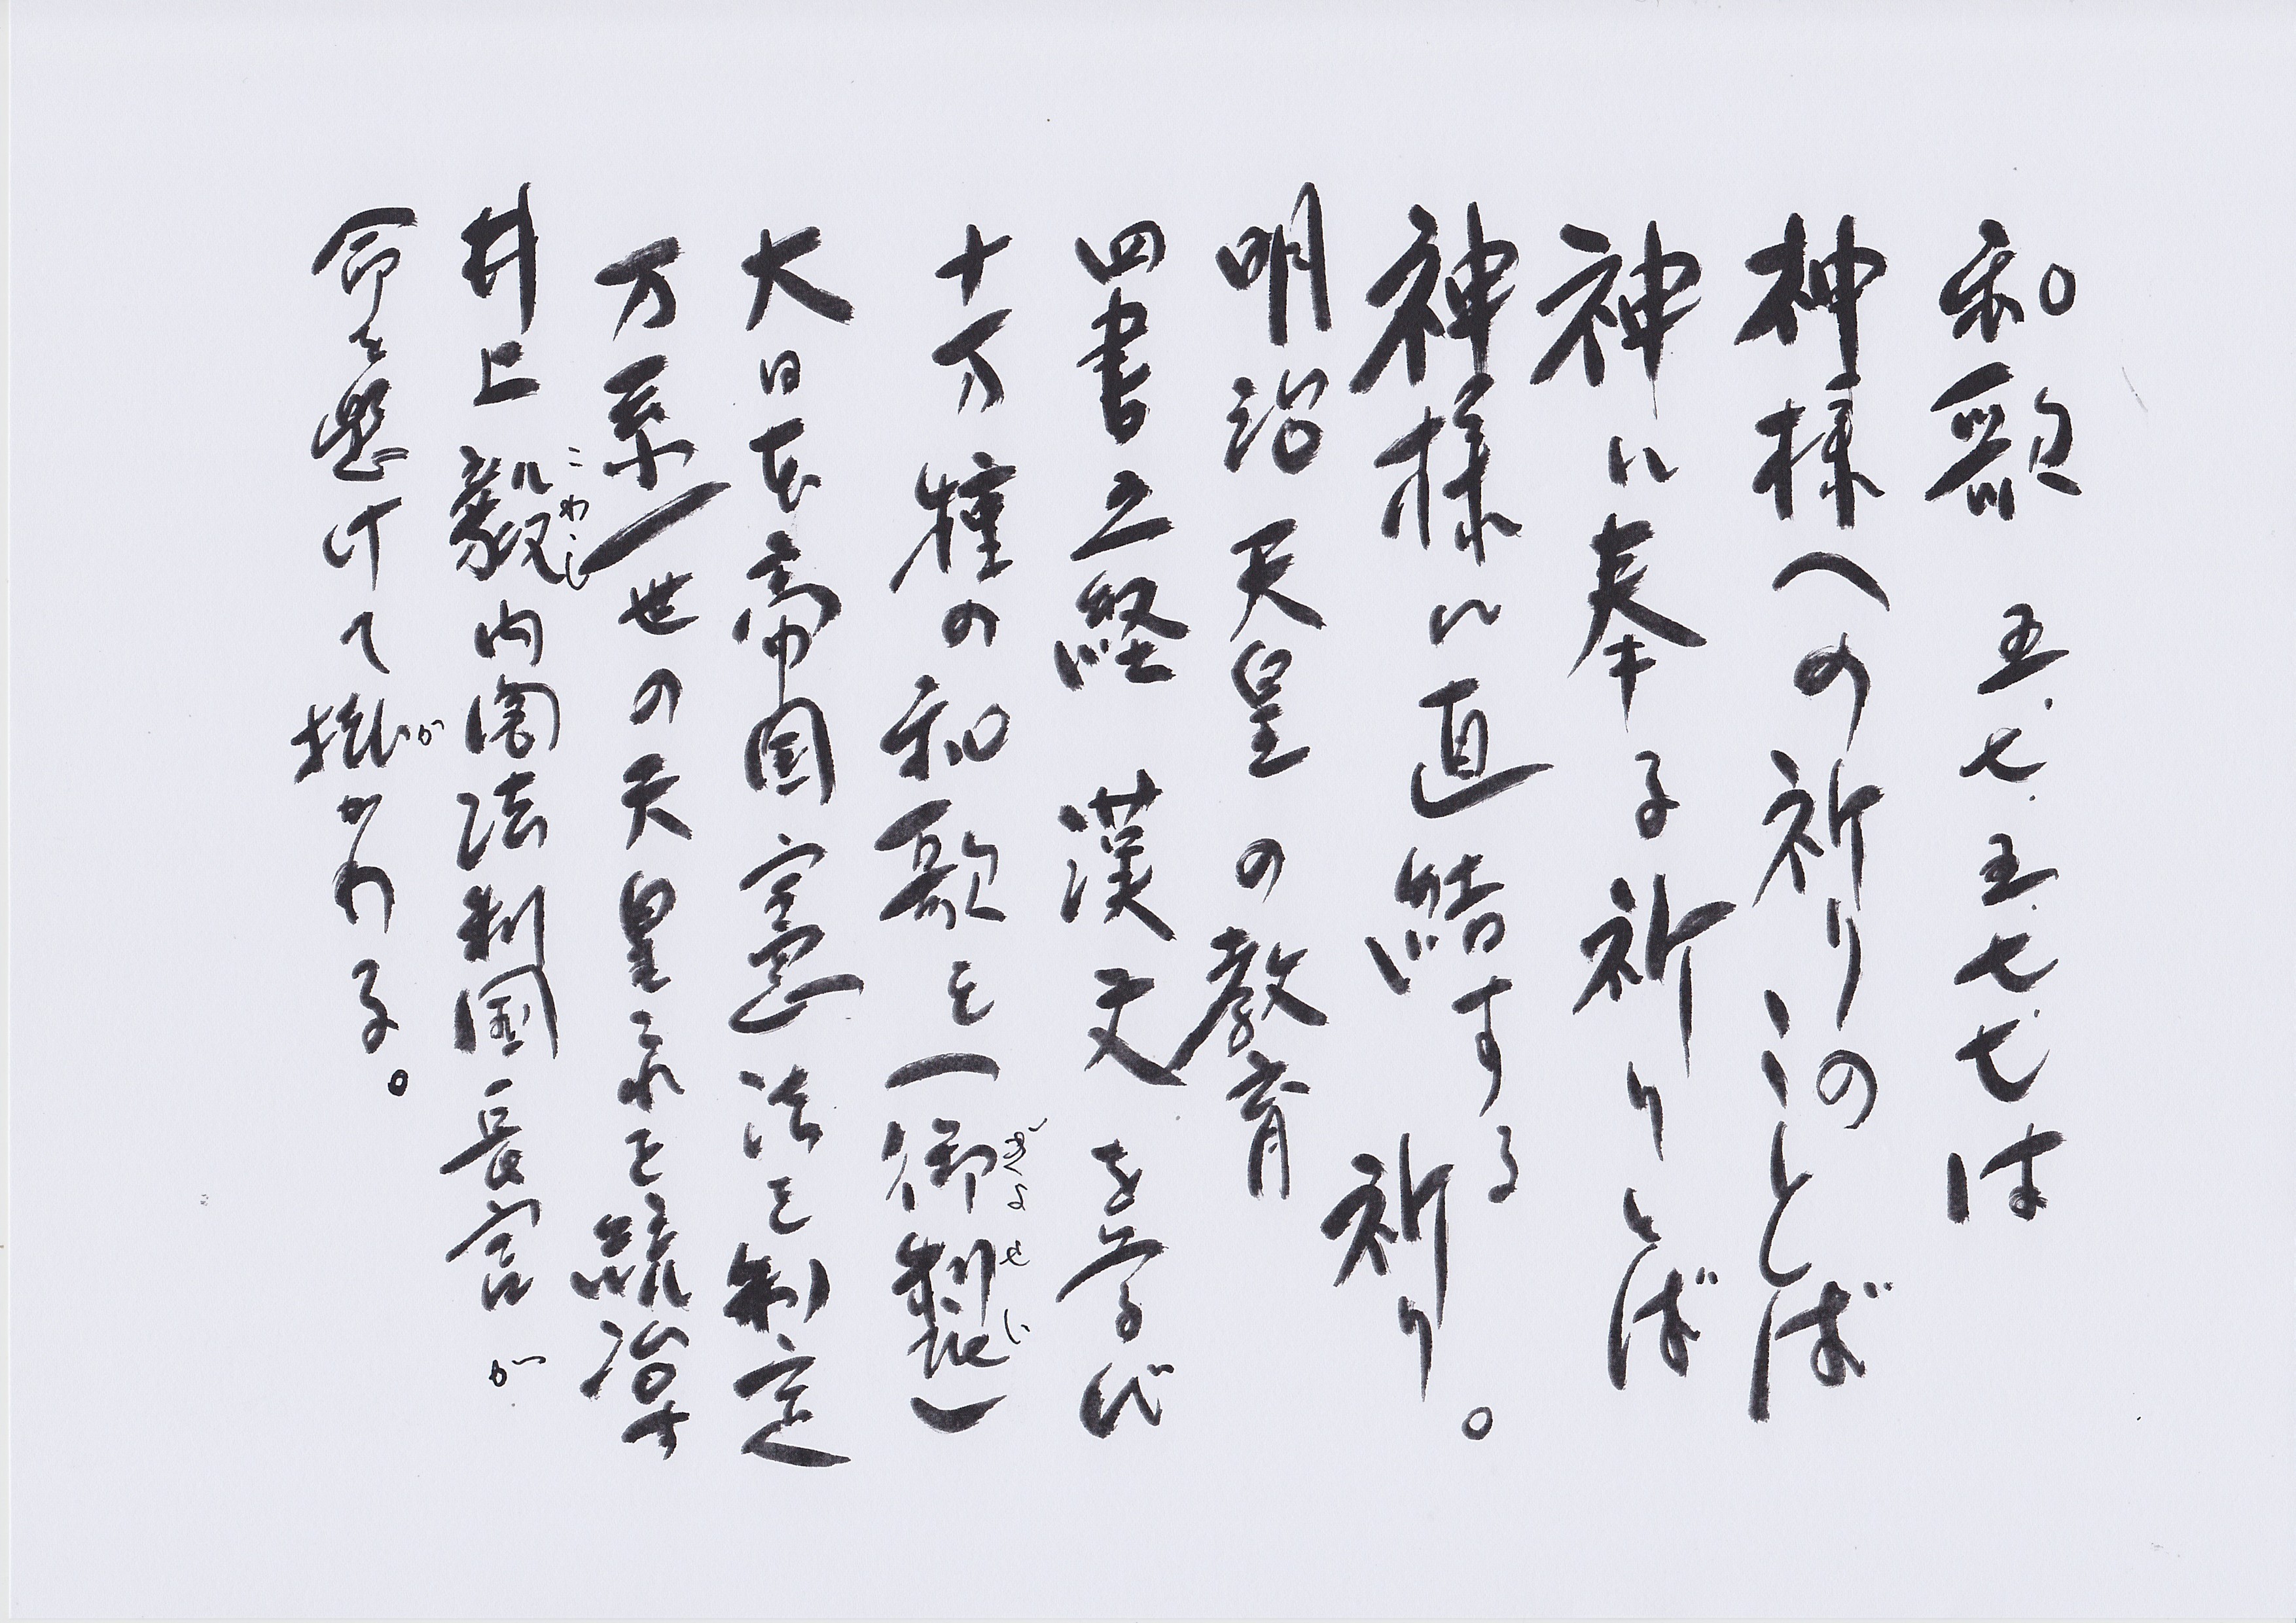 和歌 五.七.五.七.七は
神様への祈りのことば
神に奉る祈りことば
神様に直結する祈り。
明治天皇の教育
四書五経 漢文を学び
十万種の和歌を一御製一
大日本帝国憲法を制定
万系一世の天皇これを統治す
井上毅こわし内閣法制国長官が
命を懸けて掛かわる。